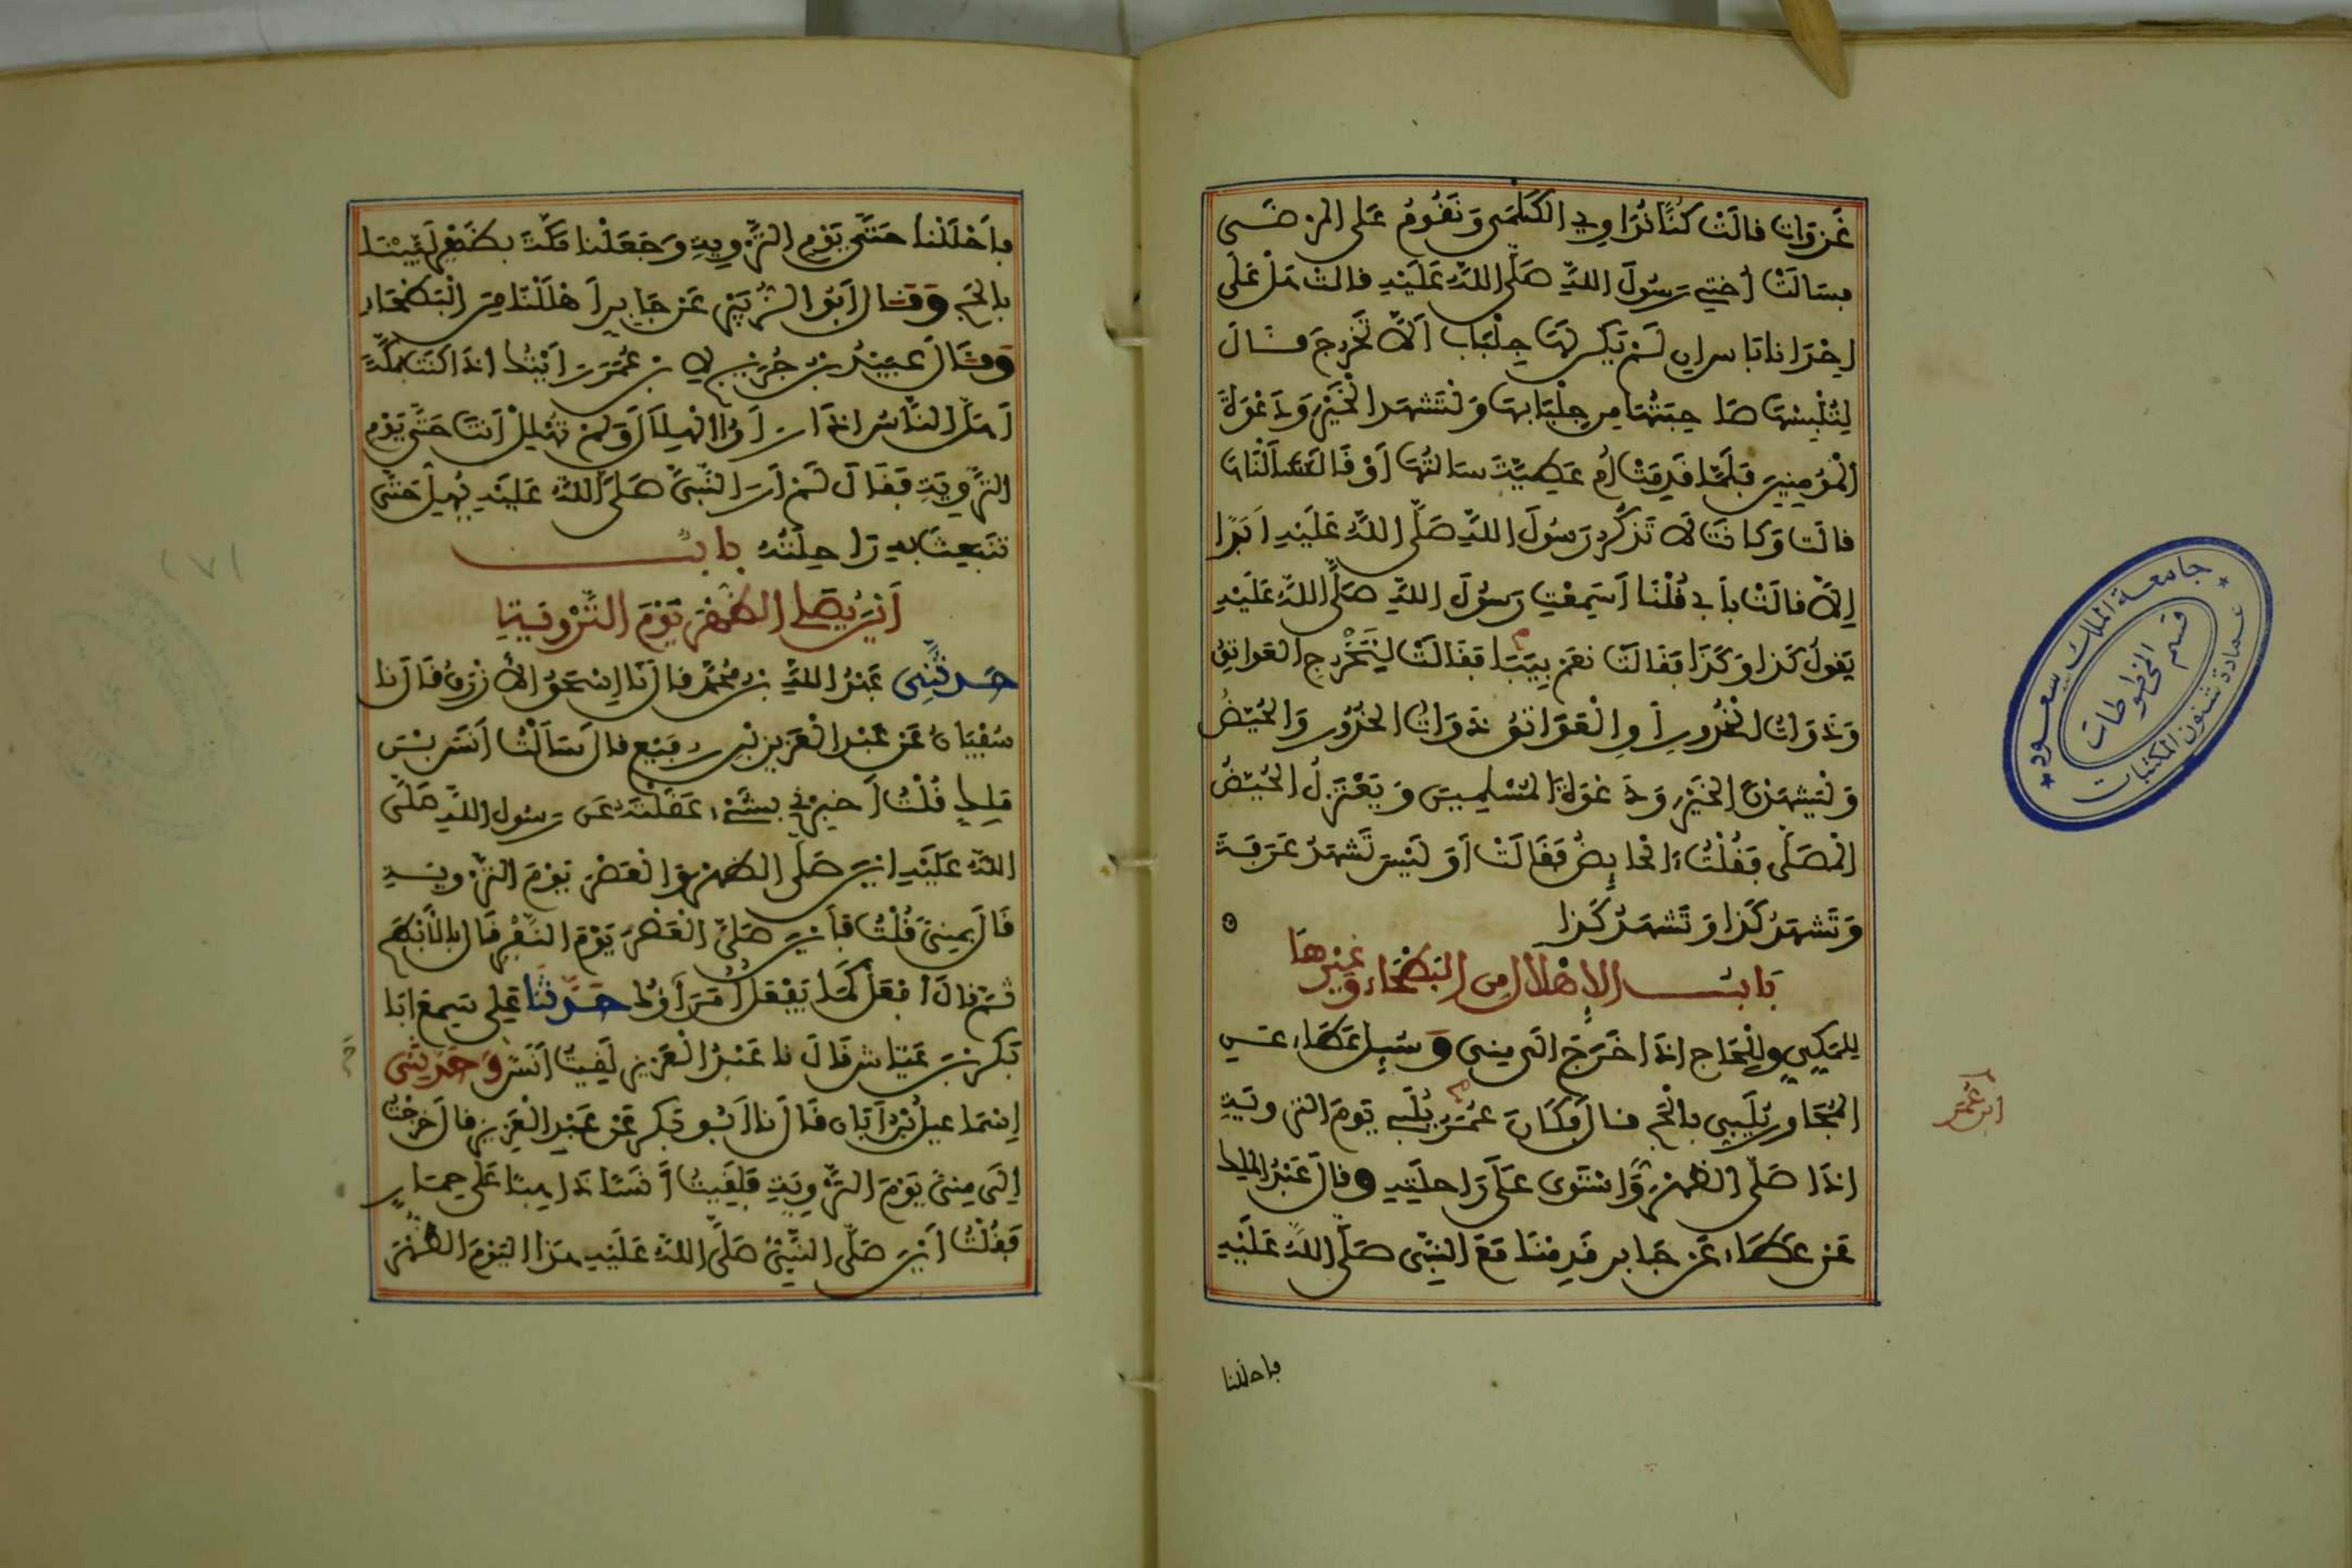 غَزَوَاتٍ قَالَتْ كُنَّا نُدَاوِي الْكَلْمَى وَنَقُومُ عَلَى الْمَرْضَى
فَسَأَلَتْ أُخْتِي رَسُولَ اللَّهِ صَلَّى اللَّهُ عَلَيْهِ قَالَتْ هَلْ عَلَى
إِحْدَانَا بَأْسٌ إِنْ لَمْ يَكُنْ لَهَا جِلْبَابٌ أَلَّا تَخْرُجَ قَالَ
لِتُلْبِسْهَا صَاحِبَتُهَا مِنْ جِلْبَابِهَا وَلْتَشْهَدِ الْخَيْرَ وَدَعْوَةَ
الْمُؤْمِنِينَ فَلَمَّا قَدِمَتْ أُمُّ عَطِيَّةَ سَأَلْتُهَا أَوْ قَالَتْ سَأَلْنَاهَا
قَالَتْ وَكَانَتْ لَا تَذْكُرُ رَسُولَ اللَّهِ صَلَّى اللَّهُ عَلَيْهِ أَبَدًا
إِلَّا قَالَتْ بِأَبِي قُلْنَا أَسَمِعْتِ رَسُولَ اللَّهِ صَلَّى اللَّهُ عَلَيْهِ
يَقُولُ كَذَا وَكَذَا فَقَالَتْ نَعَمْ بِيَبَا فَقَالَتْ لِتَخْرُجِ الْعَوَاتِقُ
وَذَوَاتُ الْخُدُورِ أَوِ الْعَوَاتِقُ ذَوَاتُ الْخُدُورِ وَالْحُيَّضُ
وَلْيَشْهَدْنَ الْخَيْرَ وَدَعْوَةَ الْمُسْلِمِينَ وَيَعْتَزِلُ الْحُيَّضُ
الْمُصَلَّى فَقُلْتُ ءَالْحَائِضُ فَقَالَتْ أَوَ لَيْسَ تَشْهَدُ عَرَفَةَ
وَتَشْهَدُ كَذَا وَتَشْهَدُ كَذَا
بَابُ الْإِهْلَالِ مِنَ الْبَطْحَاءِ وَغَيْرِهَا
لِلْمَكِّيِّ وَلِلْحَاجِّ إِذَا خَرَجَ إِلَى مِنًى وَسُئِلَ عَطَاءٌ عَنِ
الْمُجَاوِرِ يُلَبِّي بِالْحَجِّ قَالَ وَكَانَ عُمَرَ يُلَبِّي يَوْمَ التَّرْوِيَةِ
ابْنُ عُمَرَ
إِذَا صَلَّى الظُّهْرَ وَاسْتَوَى عَلَى رَاحِلَتِهِ وَقَالَ عَبْدُ الْمَلِكِ
عَنْ عَطَاءٍ عَنْ جَابِرٍ قَدِمْنَا مَعَ النَّبِيِّ صَلَّى اللَّهُ عَلَيْهِ
فأحللنا
جامعة الملك سعود
قسم المخطوطات
عمادة شئون المكتبات
فَأَحْلَلْنَا حَتَّى يَوْمِ التَّرْوِيَةِ وَجَعَلْنَا مَكَّةَ بِظَهْرٍ لَبَّيْنَا
بِالْحَجِّ وَقَالَ أَبُو الزُّبَيْرِ عَنْ جَابِرٍ أَهْلَلْنَا مِنَ الْبَطْحَاءِ
وَقَالَ عُبَيْدُ بْنُ جُرَيْجٍ لِابْنِ عُمَرَ رَأَيْتُكَ إِذَا كُنْتَ بِمَكَّةَ
أَهَلَّ النَّاسُ إِذَا رَأَوُا الْهِلَالَ وَلَمْ تُهْلِلْ أَنْتَ حَتَّى يَوْمِ
التَّرْوِيَةِ فَقَالَ لَمْ أَرَ النَّبِيَّ صَلَّى اللَّهُ عَلَيْهِ يُهِلُّ حَتَّى
تَنْبَعِثَ بِهِ رَاحِلَتُهُ بَابُ
أَيْنَ يُصَلِّي الظُّهْرَ يَوْمَ التَّرْوِيَةِ
حَدَّثَنِي عَبْدُ اللَّهِ بْنُ مُحَمَّدٍ قَالَ نَا إِسْحَقُ الْأَزْرَقُ قَالَ نَا
سُفْيَانُ عَنْ عَبْدِ الْعَزِيزِ بْنِ رُفَيْعٍ قَالَ سَأَلْتُ أَنَسَ بْنَ
مَالِكٍ قُلْتُ أَخْبِرْنِي بِشَيْءٍ عَقَلْتَهُ عَنْ رَسُولِ اللَّهِ صَلَّى
اللَّهُ عَلَيْهِ أَيْنَ صَلَّى الظُّهْرَ وَالْعَصْرَ يَوْمَ التَّرْوِيَةِ
قَالَ بِمِنًى قُلْتُ فَأَيْنَ صَلَّى الْعَصْرَ يَوْمَ النَّفْرِ قَالَ بِالْأَبْطَحِ
ثُمَّ قَالَ افْعَلْ كَمَا يَفْعَلُ أُمَرَاؤُكَ حَدَّثَنَا عَلِيٌّ سَمِعَ أَبَا
بَكْرِ بْنَ عَيَّاشٍ قَالَ نَا عَبْدُ الْعَزِيزِ لَقِيتُ أَنَسًا وَحَدَّثَنِي
إِسْمَاعِيلُ بْنُ أَبَانَ قَالَ نَا أَبُو بَكْرٍ عَنْ عَبْدِ الْعَزِيزِ قَالَ خَرَجْتُ
إِلَى مِنًى يَوْمَ التَّرْوِيَةِ فَلَقِيتُ أَنَسًا ذَاهِبًا عَلَى حِمَارٍ
فَقُلْتُ أَيْنَ صَلَّى النَّبِيُّ صَلَّى اللَّهُ عَلَيْهِ هَذَا الْيَوْمَ الظُّهْرَ